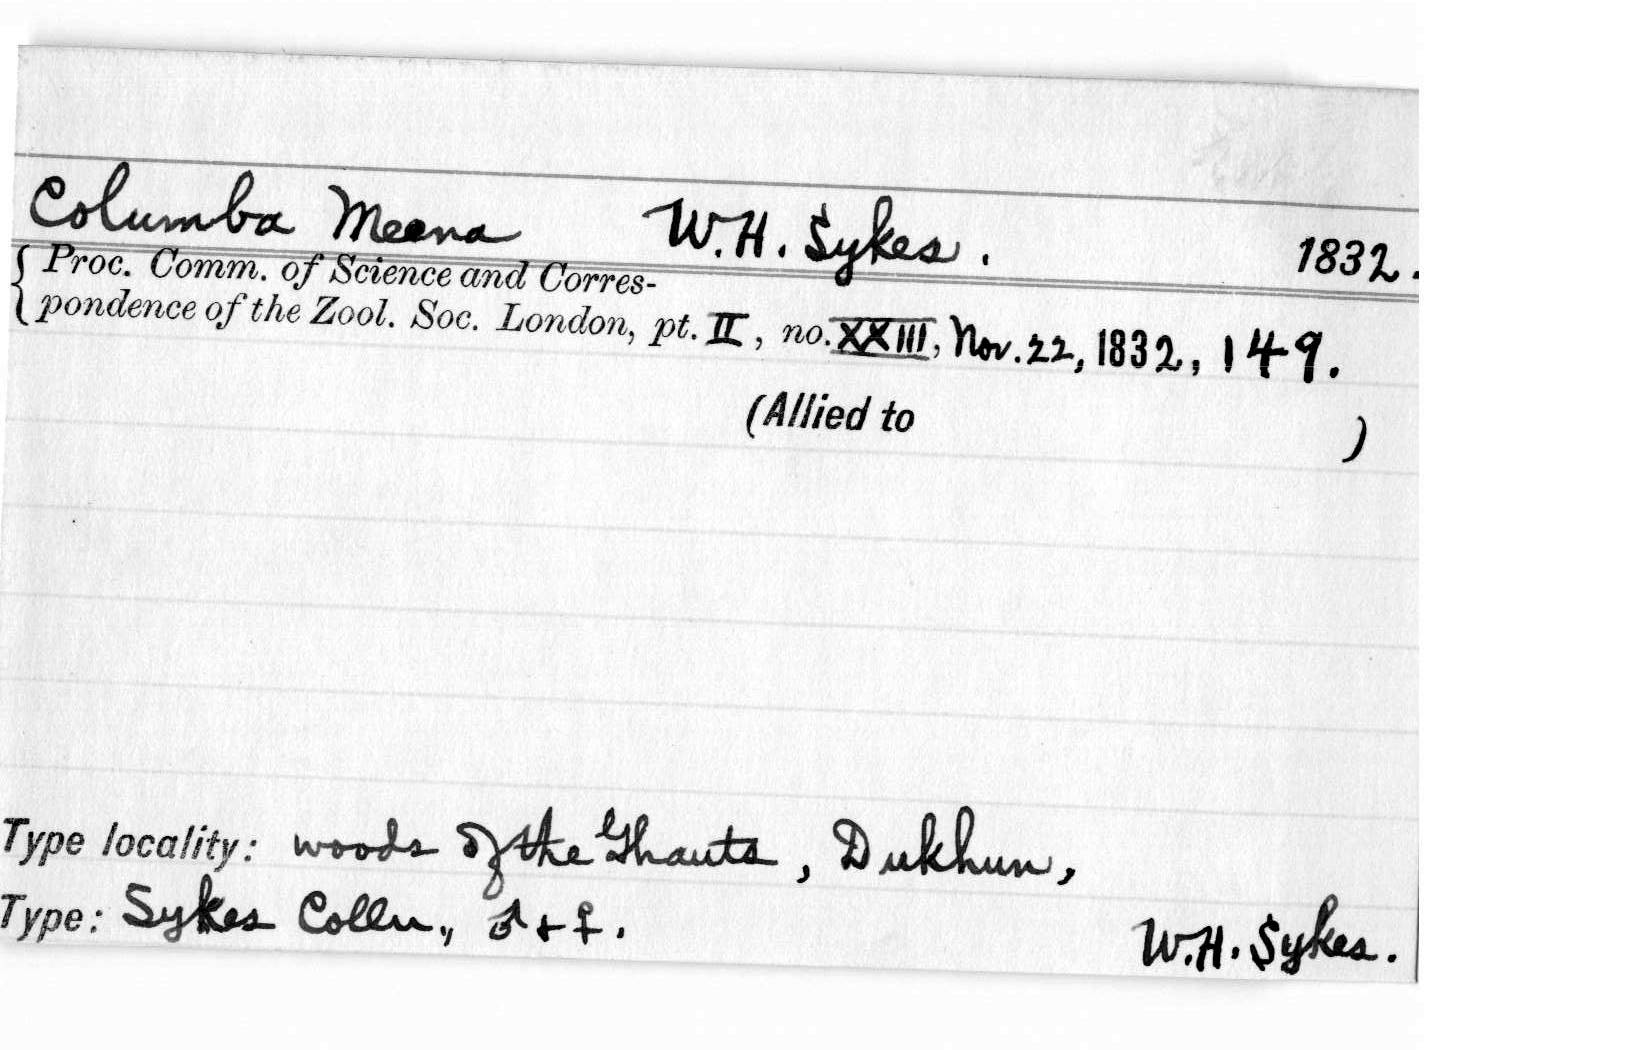 Columba Meena W.H. Sykes. 1832.
{ Proc. Comm. of Science and Corres-
pondence of the Zool. Soc. London, pt. II, no. XXIII, Nov. 22, 1832, 149.
(Allied to )
Type locality: woods of the Ghauts, Dukhun,
Type: Sykes Colln., ♂ + ♀. W.H. Sykes.